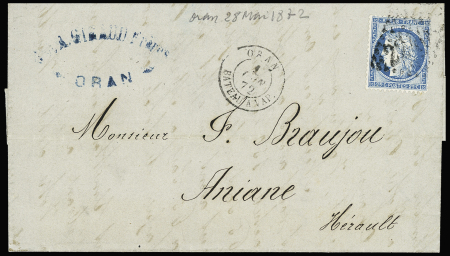 oran 28 Mai 1872
GIRAUD Frères
ORAN
ORAN
72
BATEAU A VAP.
Monsieur F. Braujou
Aniane
Hérault